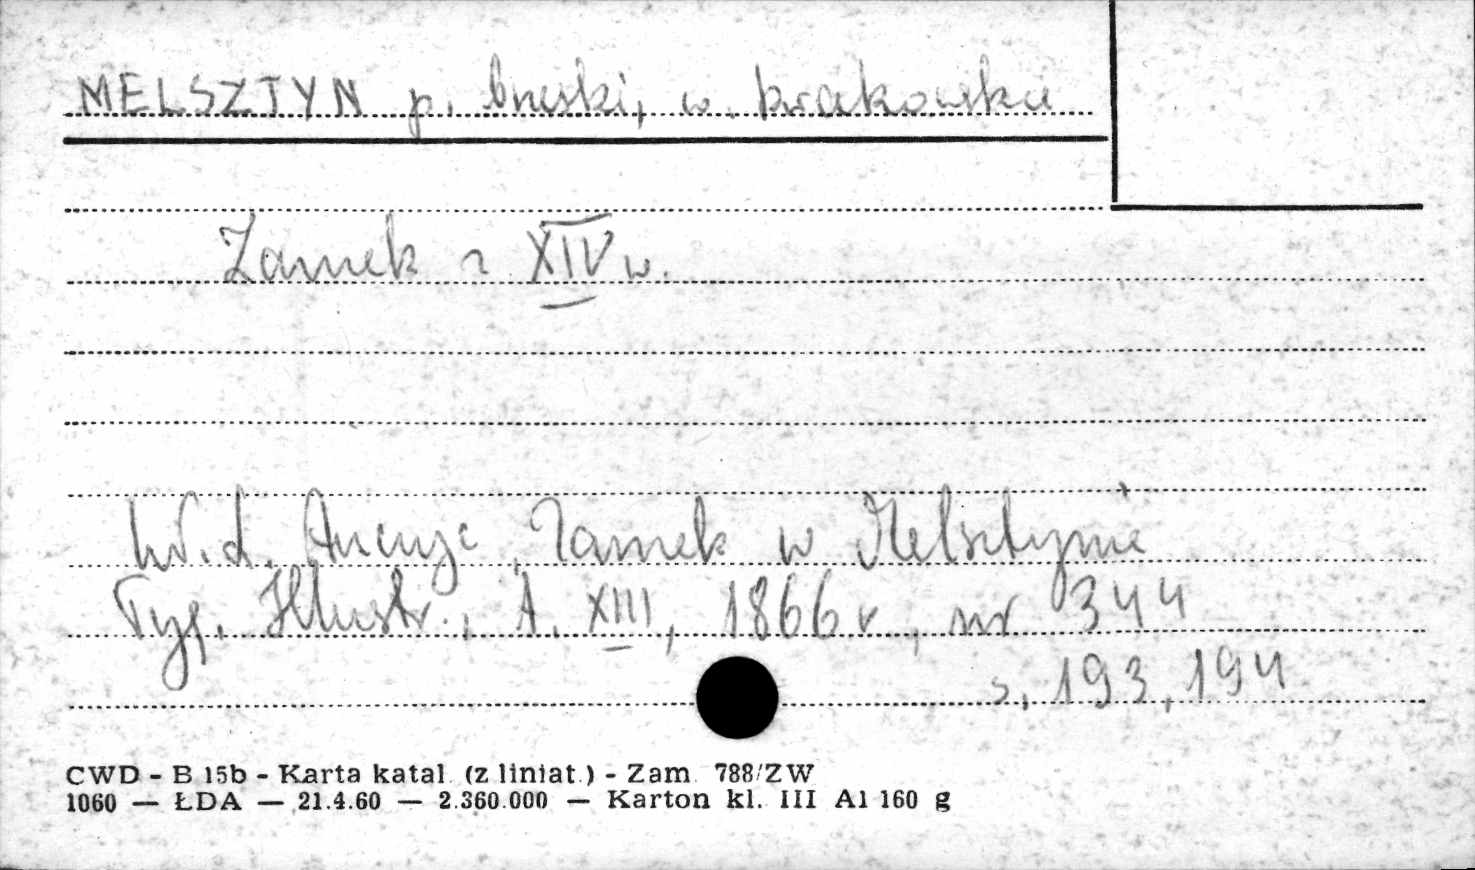 MELSZTYN p. brzeski, w. krakowskie
Zamek z XIV w.
Wł. L. Anczyc, Zamek w Melsztynie
Tyg. Illustr., t. XIII, 1866 r, nr 344
s. 193, 194
CWD - B 15b - Karta katal. (z liniat.) - Zam. 788/ZW
1060 — ŁDA — 21.4.60 — 2.360.000 — Karton kl. III A1 160 g